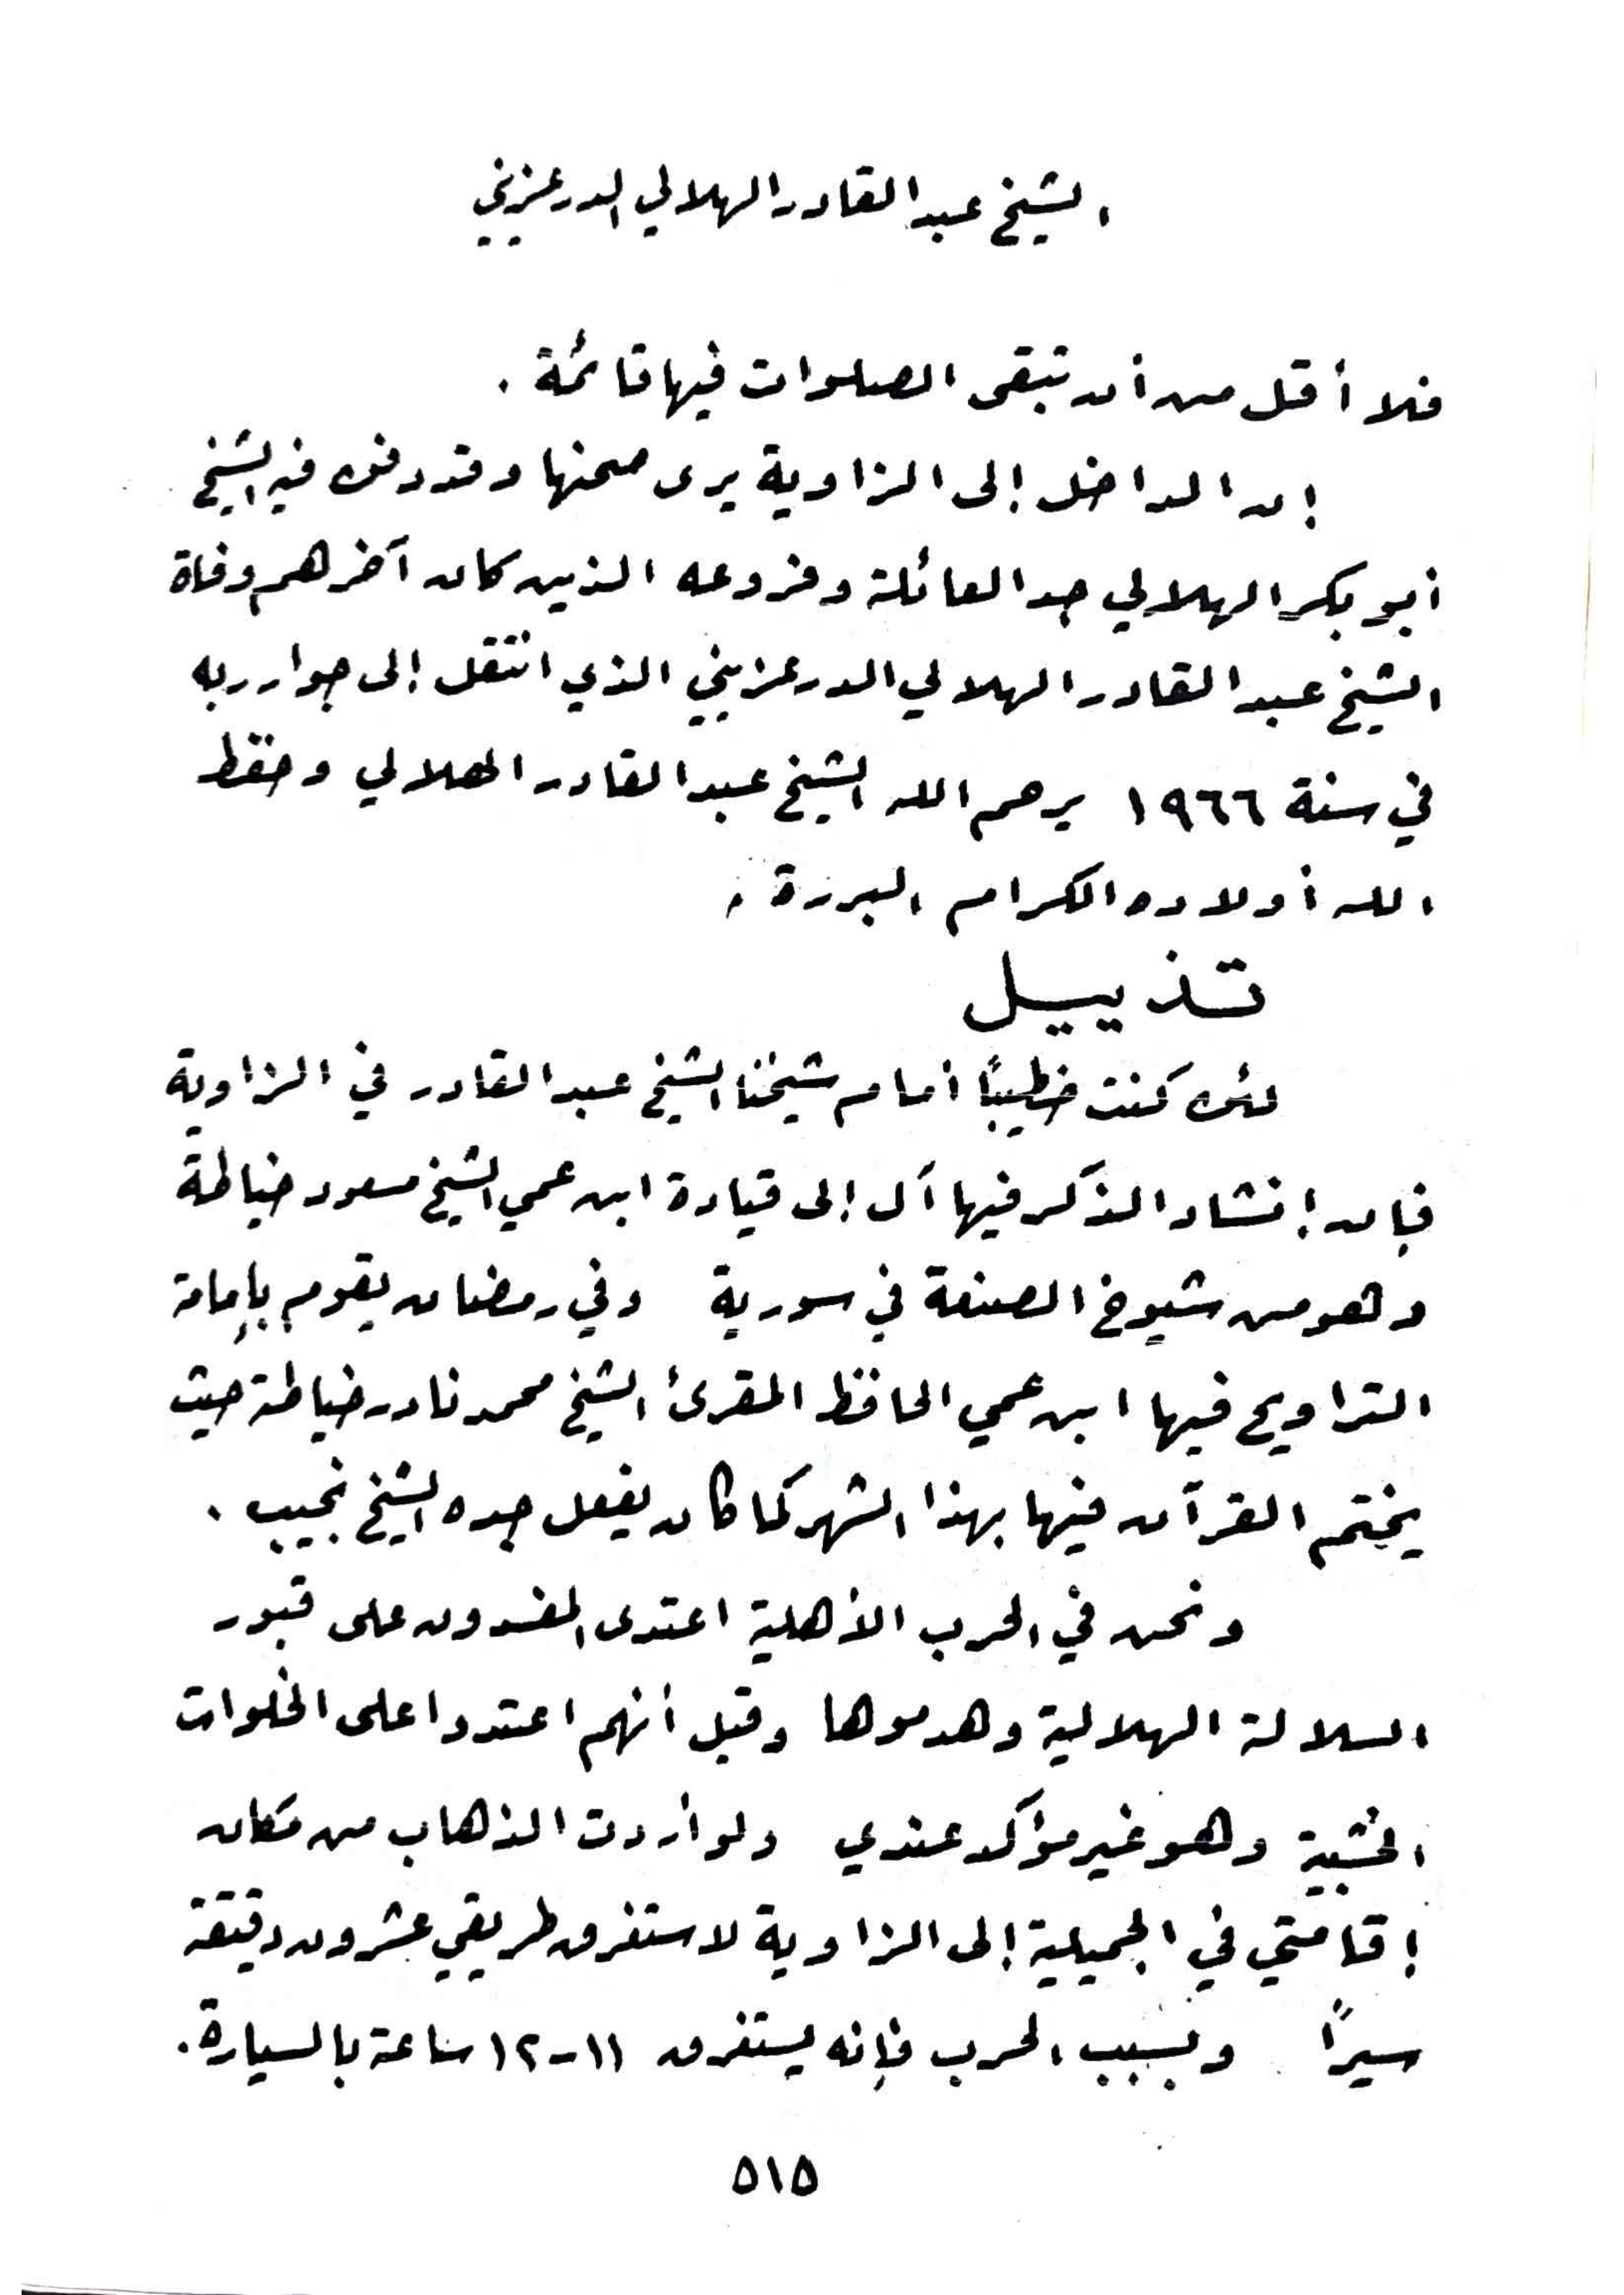 الشيخ عبد القادر الهلالي الدرعزيني
فلا أقل من أن تبقى الصلوات فيها قائمة .
إن الداخل إلى الزاوية يرى صحنها وقد دفن فيه الشيخ
أبو بكر الهلالي جد العائلة وفروعه الذين كان آخرهم وفاة
الشيخ عبد القادر الهلالي الدرعزيني الذي انتقل إلى جوار ربه
في سنة ١٩٦٦ يرحم الله الشيخ عبد القادر الهلالي وحفظ
الله أولاده الكرام البررة .
تذييل
لئن كنت خطيبًا أمام شيخنا الشيخ عبد القادر في الزاوية
فإن إنشاد الذكر فيها آل إلى قيادة ابن عمي الشيخ مسعود خياطة
وهو من شيوخ الصنعة في سورية وفي رمضان يقوم بإمامة
التراويح فيها ابن عمي الحافظ المقرئ الشيخ محمد نادر خياطة حيث
يختم القرآن فيها بهذا الشهر كما كان يفعل جده الشيخ نجيب .
ونحن في الحرب الأهلية اعتدى المفسدون على قبور
السلالة الهلالية وهدموها وقيل أنهم اعتدوا على الخلوات
الخشبية وهو غير مؤكد عندي ولو أردت الذهاب من مكان
إقامتي في الجميلية إلى الزاوية لاستغرق طريقي عشرون دقيقة
سيرًا وبسبب الحرب فإنه يستغرق ١١-١٢ ساعة بالسيارة .
٥١٥